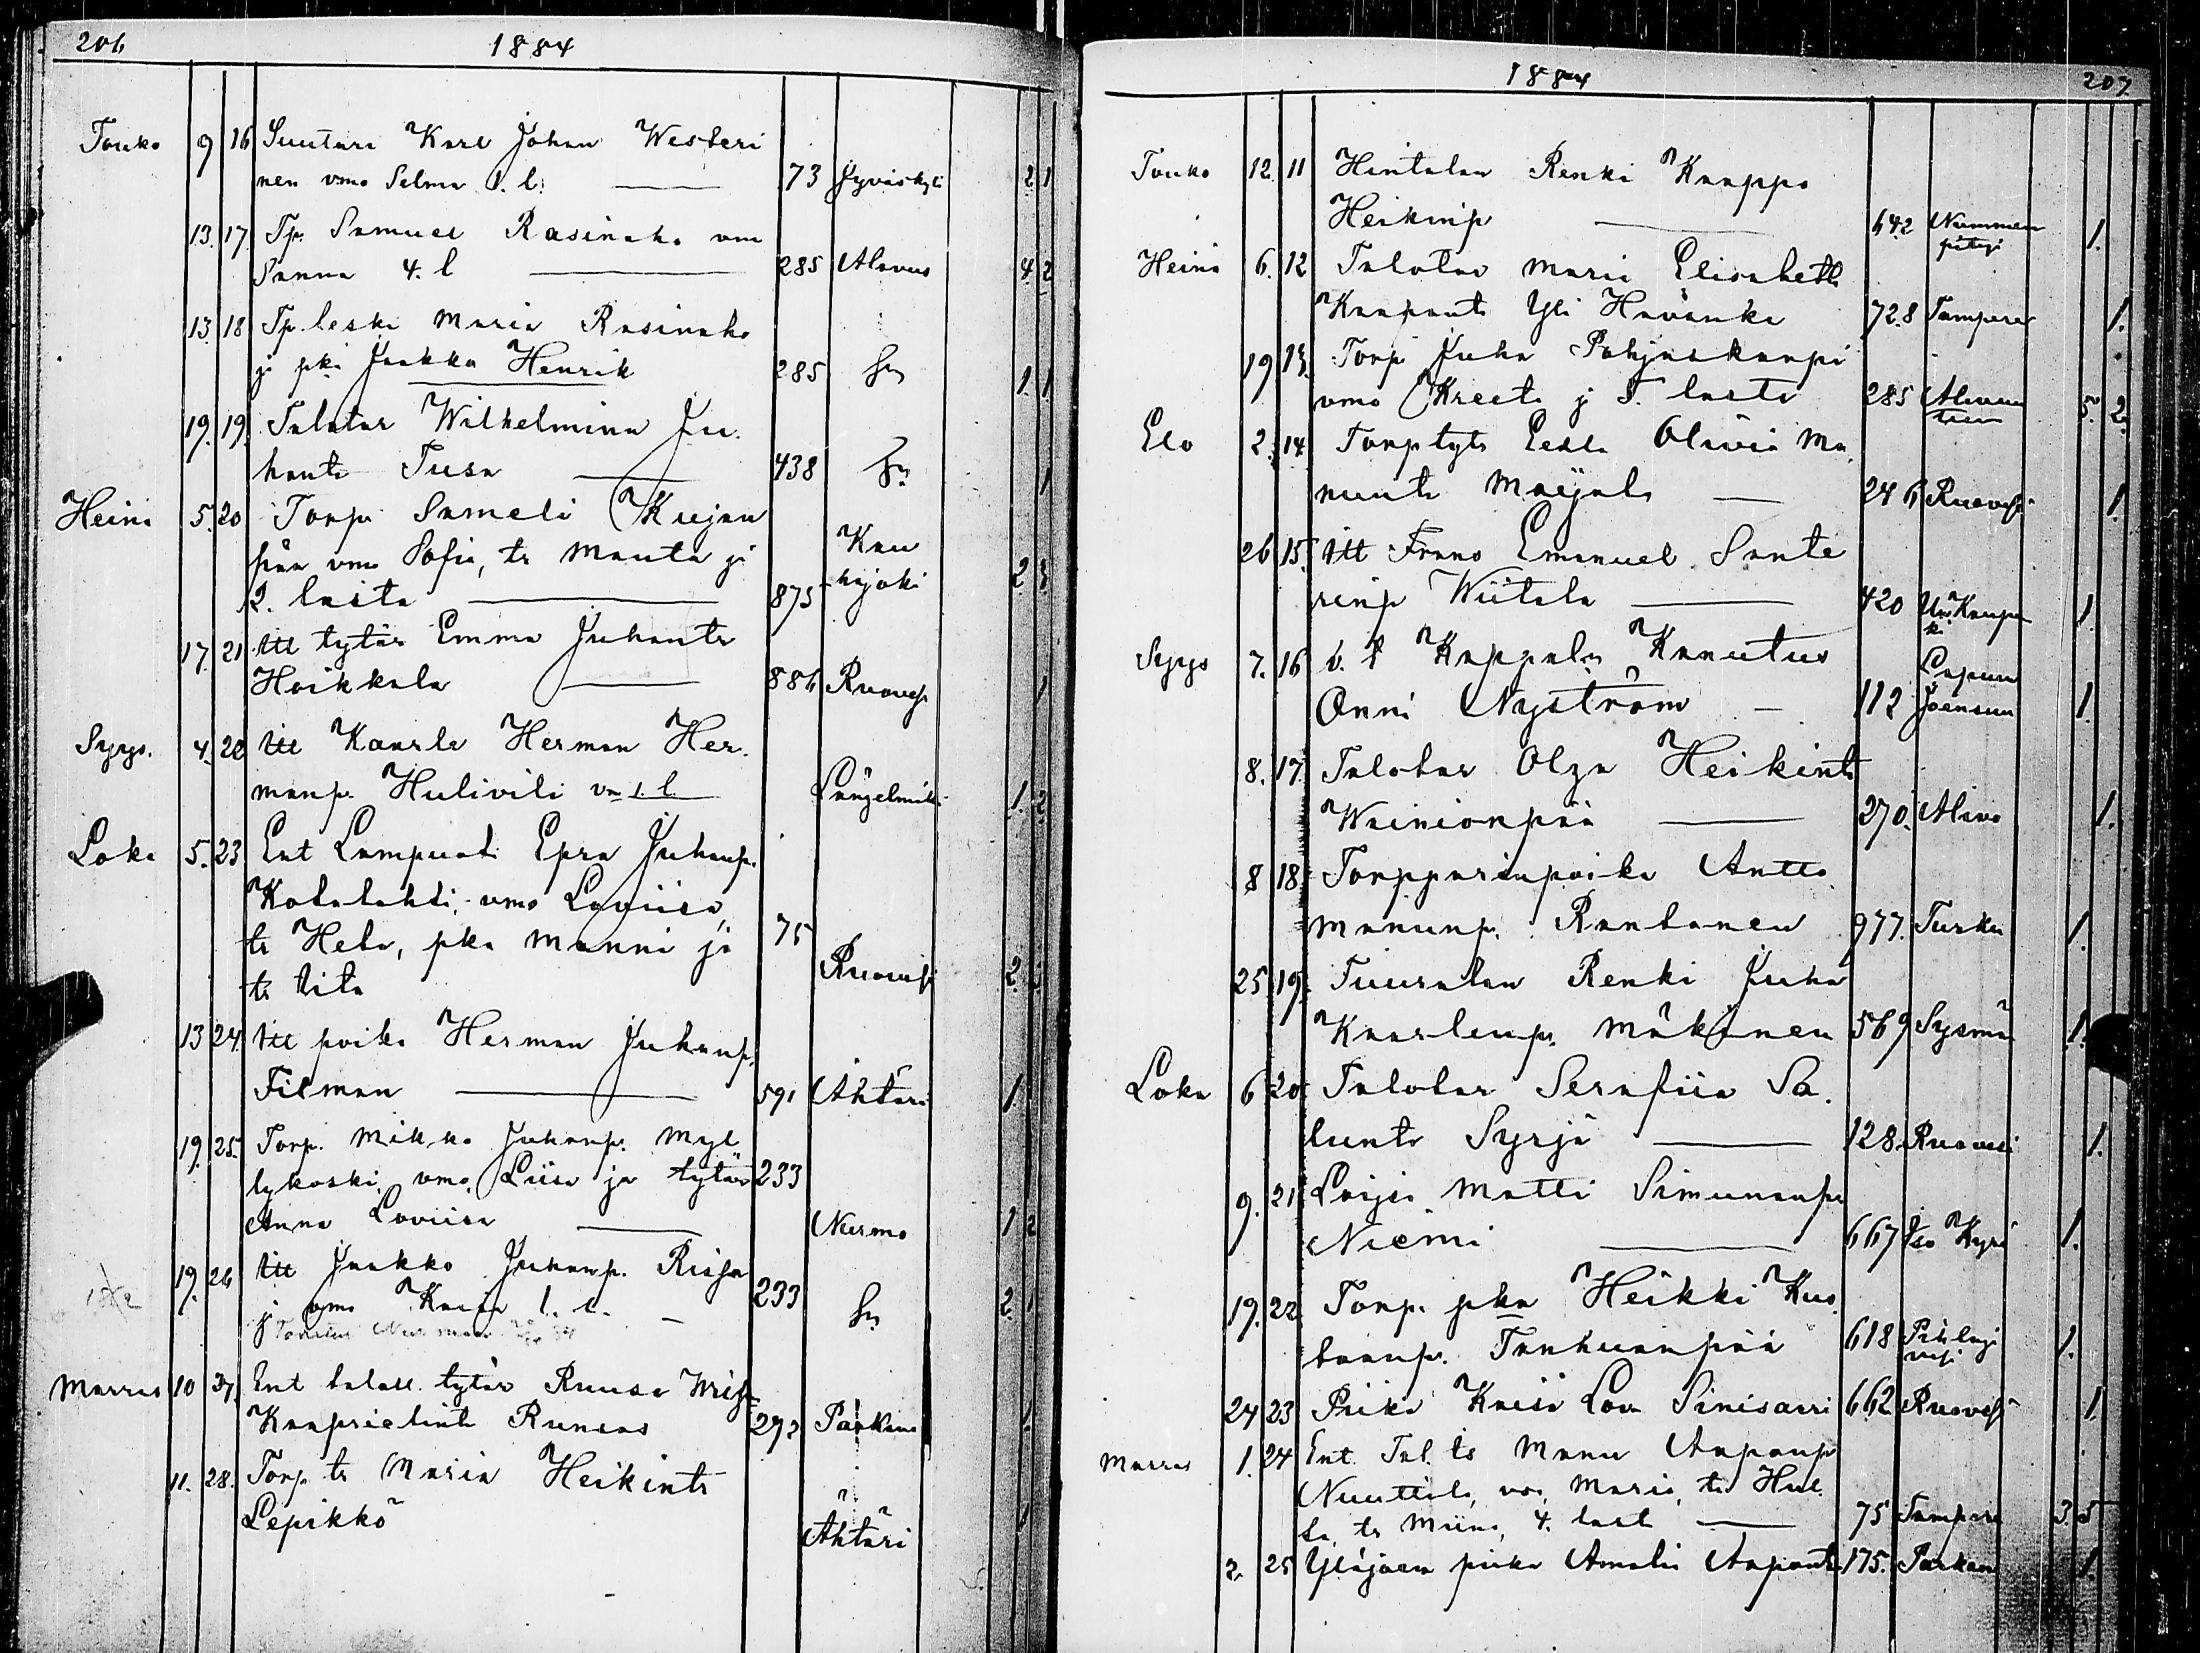 206 1884
Touko 9 16 Suutari Karl Johan Westeri
nen vmo Selma 1. l. 73 Jyväskylä 2 1
13. 17. Tp. Samuel Rasinaho vm
Sanna 4. l 285 Alavus 4 2
13. 18 Tp. leski Maria Rasinaho
ja pka Jaakko Henrik 285 Sn 1. 1
19. 19. Talotar Wilhelmina Ju.
hant. Tusa 438 Sn 1
Heinä 5. 20 Torp. Sameli Kujan
pää vmo Sofia, tr Manta ja
2. lasta 875 Kau
hajoki 2 3
17. 21 Itt tytär Emma Juhantr
Hoikkala 886 Ruovesi 1
Syys. 4. 22 Itt Kaarle Herman Her.
manp. Hulivili vm 1. l Längelmäki 1. 2
Loka 5. 23 Ent Lampuoti Epra Juhanp.
Kotalahti, vmo Loviisa,
tr Heta, pka Manni ja 75
tr Tita Ruovesi 2.
13 24. Itt poika Herman Juhanp.
Filman 591 Ähtäri 1
19. 25. Torp. Mikko Juhanp. Myl
lykoski, vmo, Liisa ja tytär 233
Anna Loviisa Nurmo 1 2
19. 26 Itt Jaakko Juhanp.
ja vmo Kaisa 1. l. 233 Sn 2. 1
Marras 10 27. Ent talall. tytär Ruusa
Kaaprielint 292 Parkano 1
11. 28. Torp tr Maria Heikintr
Lepikkö Ähtäri 1
1884 207
Touko 12. 11 Hintalan Renki Kaappo
Heikinp 642 Nummen
pitäjä 1.
Heinä 6. 12 Talotar Maria Elisabeth
Kaapantr Yli Havanka 728 Tampere 1.
19 13. Torp Juha Pohjaskampi
vmo Kreeta j 5. lasta 285 Alavuu
teen 5. 2.
Elo 2. 14 Torptytr Eedla Olivia Ma.
nuntr Maijala 246 Ruovesi 1.
26 15. Itt Frans Emanuel Sante
rinp Wiitala 420 Uusi Kaupun
ki 1.
Syys 7. 16 v. t Kappalu. Kanutus
Onni Nyström 112 Lapuan
Joensuu 1.
8. 17. Talotar Olga Heikintr
Wainionpää 270. Alavo 1.
8 18 Torpparinpoika Antto
Manunp. Rantanen 977. Turku 1.
25 19. Tuuralan Renki Juha
Kaarlenp. Mäkinen 569 Sysmä 1.
Loka 6 20 Talotar Serafiia Sa.
luntr Syrjä 128. Ruovesi 1.
9. 21 Loisia Matti Simunanp
Niemi 667 Iso Kyrö 1.
19. 22 Torp. pka Heikki Kus
taanp. Tanhuanpää 618 Pihlaja
vesi 1.
24 23 Piika Kaisa Lov. Sinisaari 662 Ruovesi 1.
Marras 1. 24 Ent. Tal. ts Manu Aapanp
Nuuttila, vmo, Maria, tr Hul.
da, tr Miina, 4. last 75 Tampere 3. 5
2. 25 Ylöjäen piika Amalia Aapantr 175. Parkano 1.